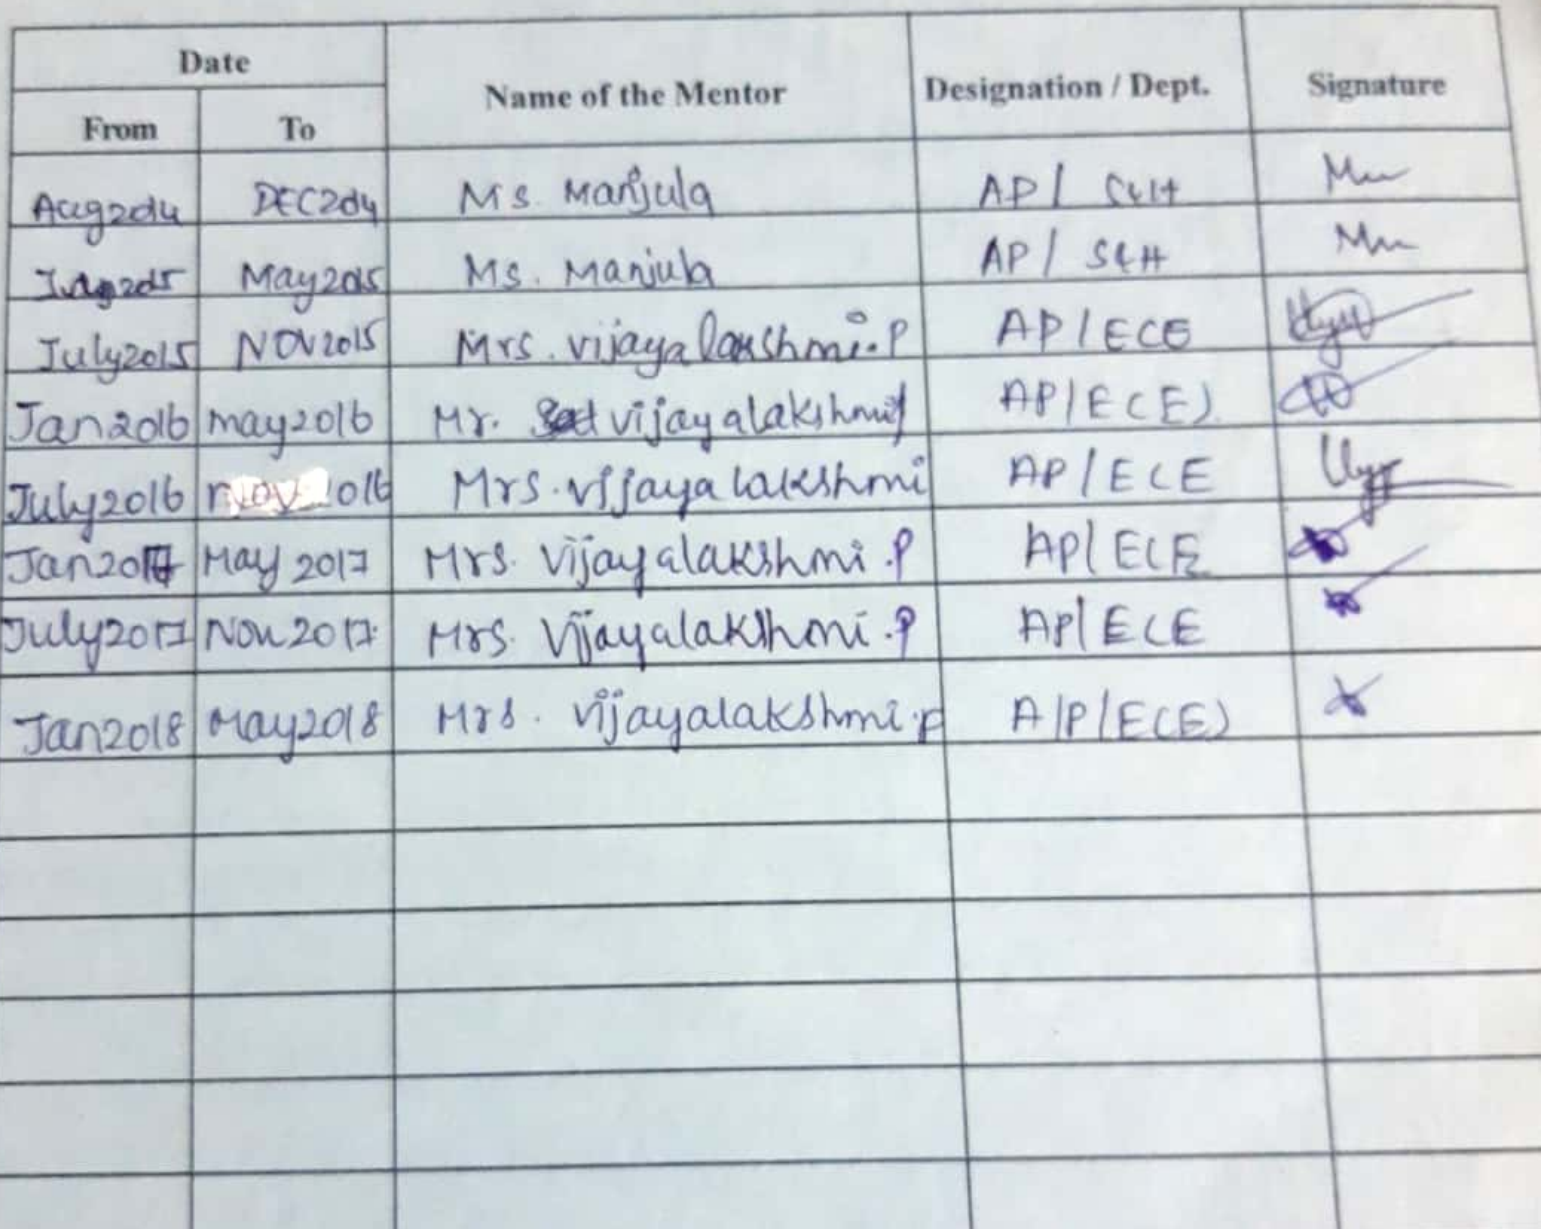 Date Name of the Mentor Designation / Dept. Signature
From To
Aug2014 DEC2014 Ms. Manjula AP / S&H
May2015 Ms. Manjula AP / S&H
July2015 NOV2015 Mrs. vijayalakshmi.P AP / ECE
Jan2016 may2016 Mr. vijayalakshmi AP/ECE)
July2016 nov 016 Mrs. vijayalakshmi AP / ECE
Jan2017 May 2017 Mrs. Vijayalakshmi .P AP/ ECE
July2017 Nov2017. Mrs. Vijayalakshmi .P AP/ ECE
Jan2018 May2018 Mrs. vijayalakshmi.P A/P/ECE)